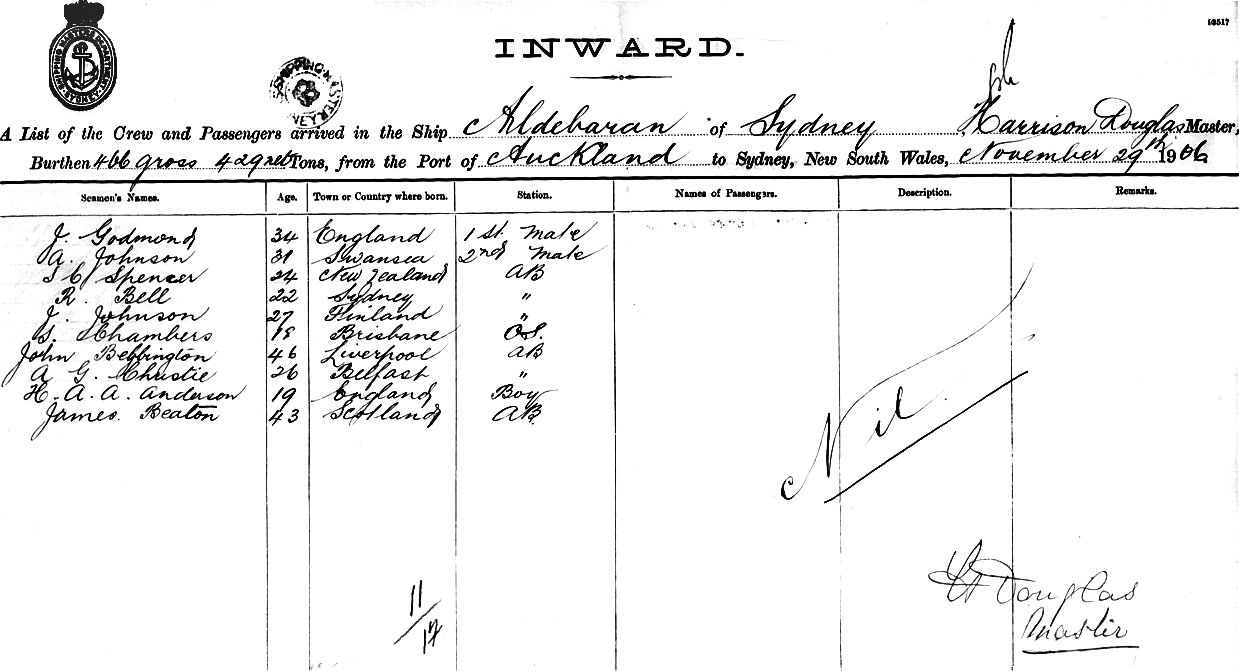 53517
INWARD.
SHIPPING MASTER'S DEPARTMENT SYDNEY
SHIPPING MASTER
A List of the Crew and Passengers arrived in the Ship Aldebaran of Sydney Harrison Douglas Master,
Burthen 466 gross 429 net Tons, from the Port of Auckland to Sydney, New South Wales, November 29th 1906
Seamen's Names. Age. Town or Country where born. Station. Names of Passengers. Description. Remarks.
J. Godmond 34 England 1st. Mate
A. Johnson 31 Swansea 2nd Mate
Spencer 24 New Zealand AB
R. Bell 22 Sydney "
J. Johnson 27 Finland "
S. Chambers 18 Brisbane OS.
John Bebbington 46 Liverpool AB
A G. Christie 26 Belfast "
H. A. A. Anderson 19 England Boy
James. Beaton 43 Scotland AB.
Nil.
11/17
H Douglas
Master